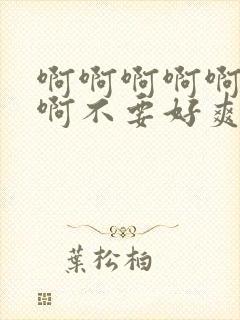 啊啊啊啊啊
啊不要好爽
葉松柏